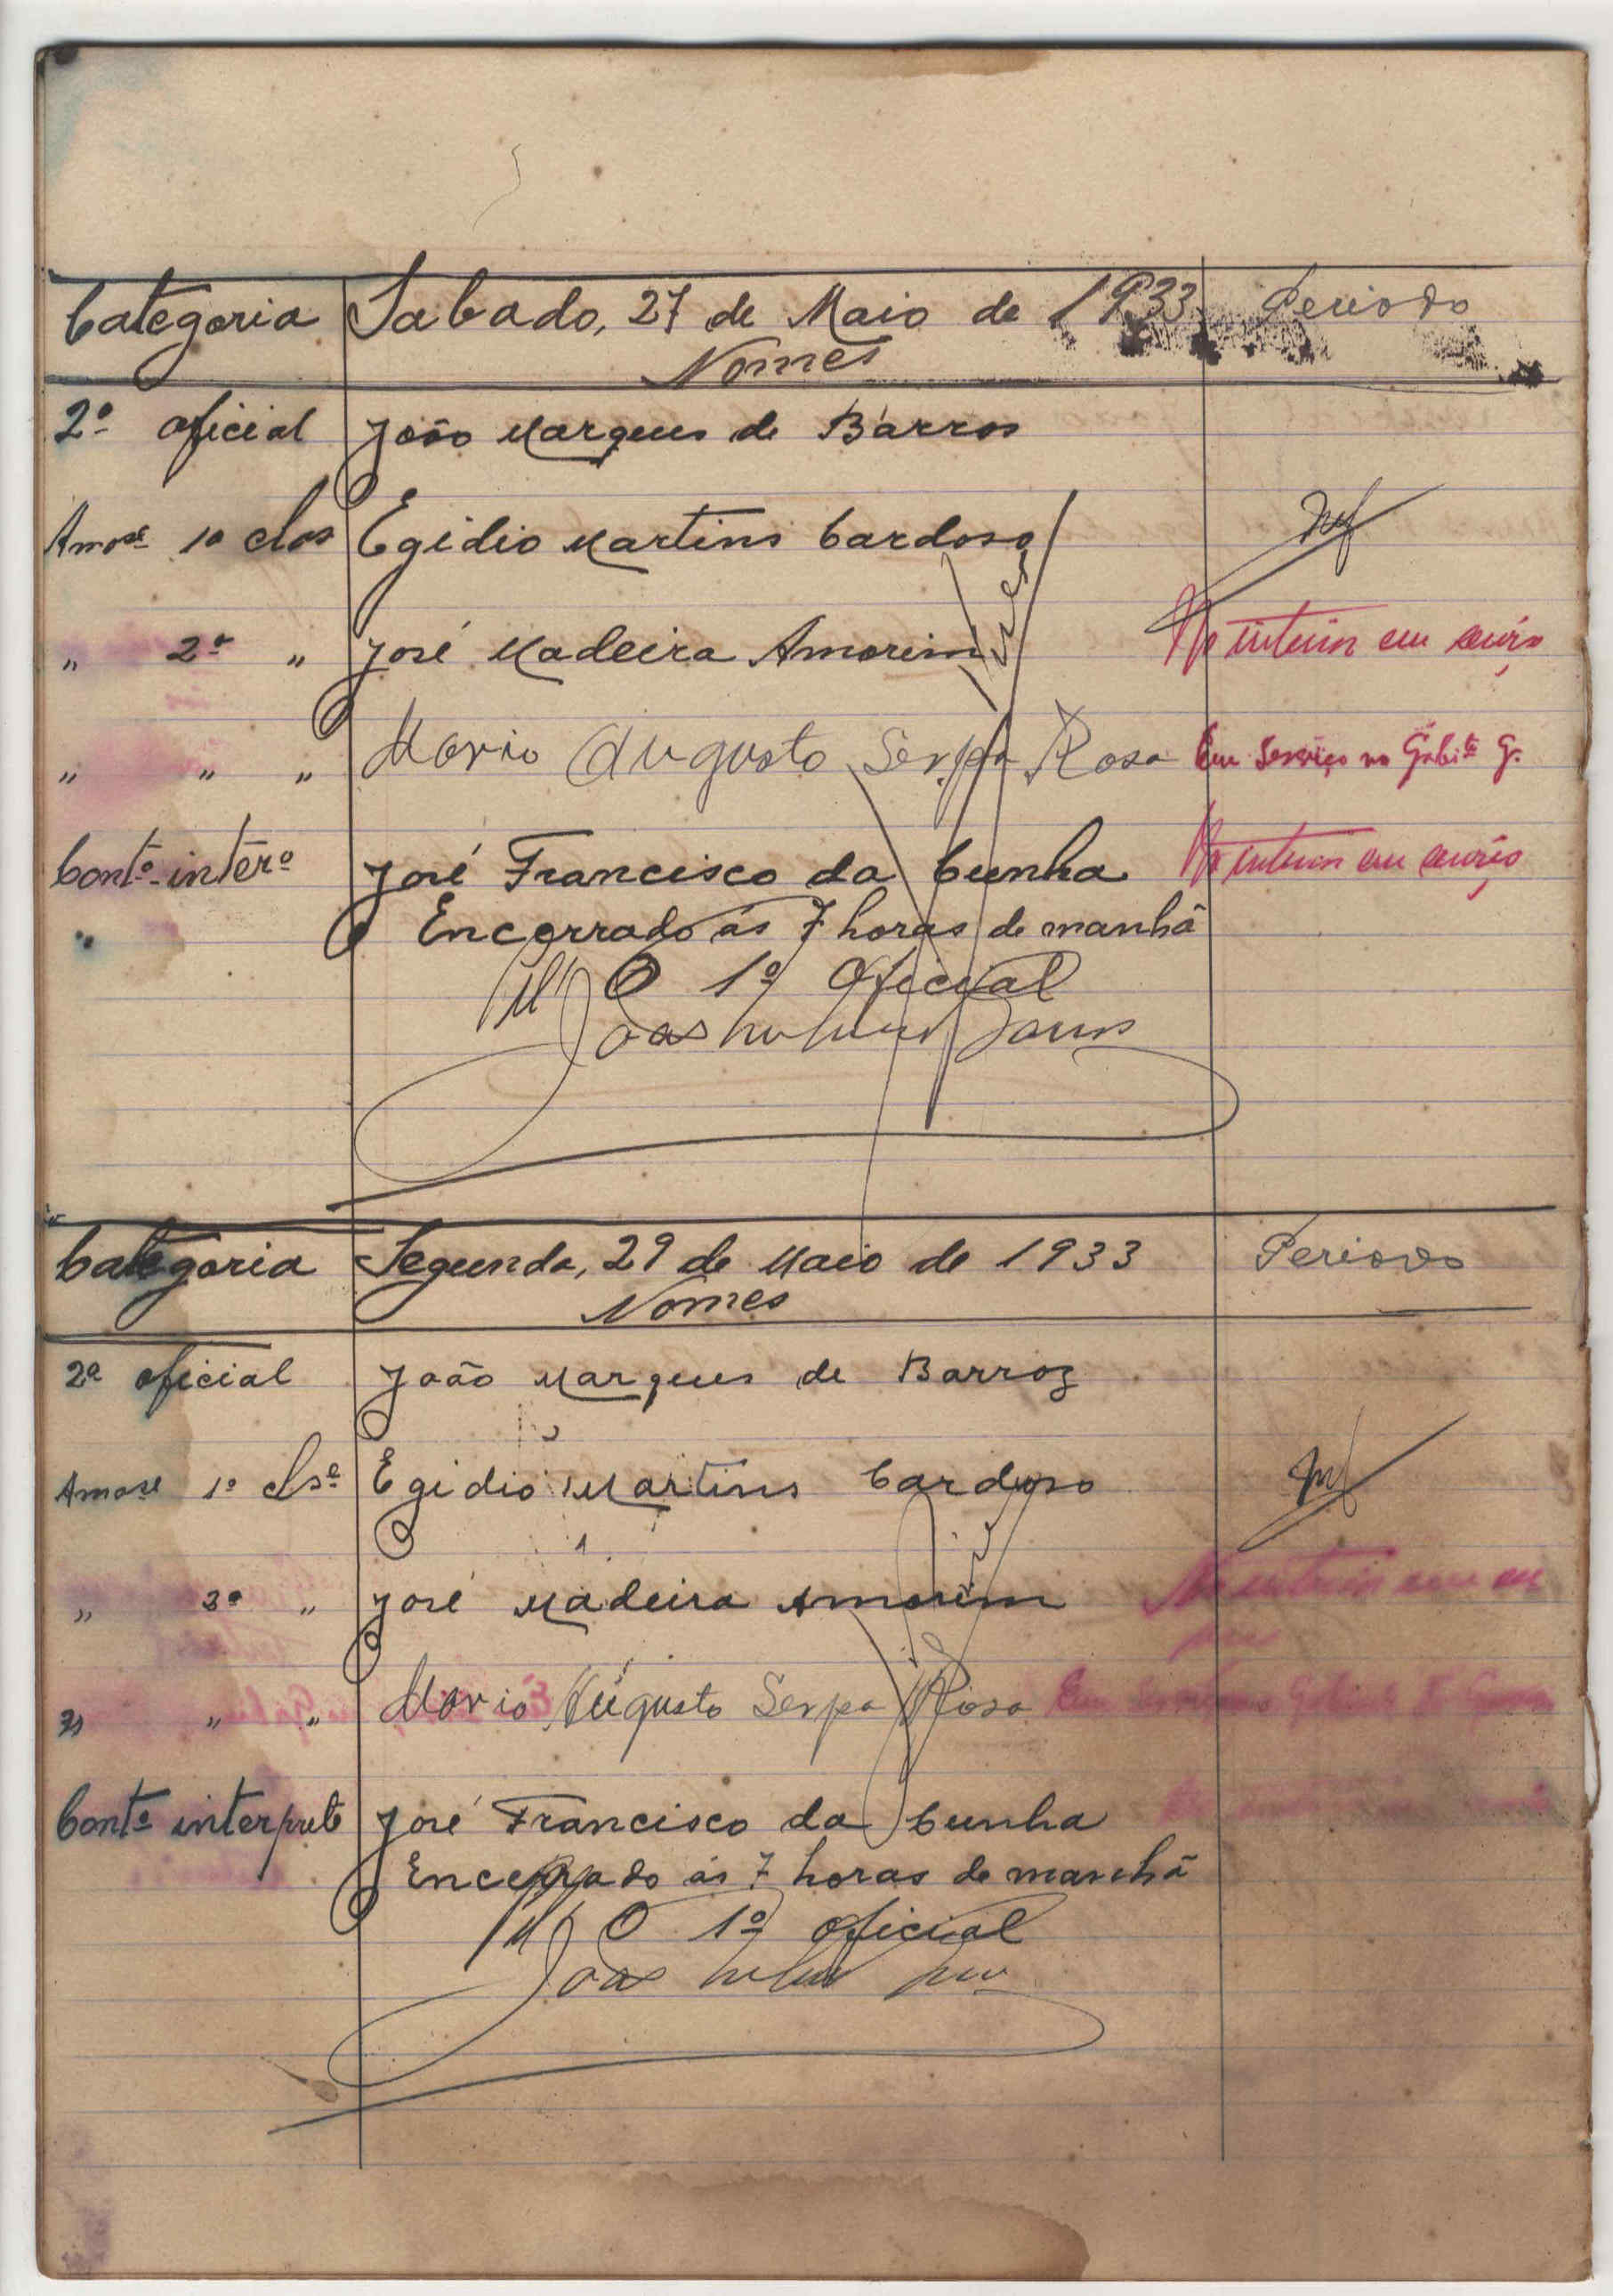 Categoria Sabado, 27 de Maio de 1933 Periodo
Nomes
2º oficial João Marques de Barros
Amose 1ª clas Egidio Martins Cardoso
" 2ª " José Madeira Amorim No interior em serviço
" " " Mario Augusto Serpa Rosa Em Serviço no Gabite G.
Contº intérº José Francisco da Cunha No interior em serviço
" Encerrado ás 7 horas de manhã
O 1º Oficial
Categoria Segunda, 29 de Maio de 1933 Periodo
Nomes
2º oficial João Marques de Barroz
Amose 1ª clse Egidio Martins Cardoso
" 3ª " José Madeira Amorim
" " " Mario Augusto Serpa Rosa Em
Contº interprete José Francisco da Cunha
Encerrado ás 7 horas de manhã
O 1º oficial